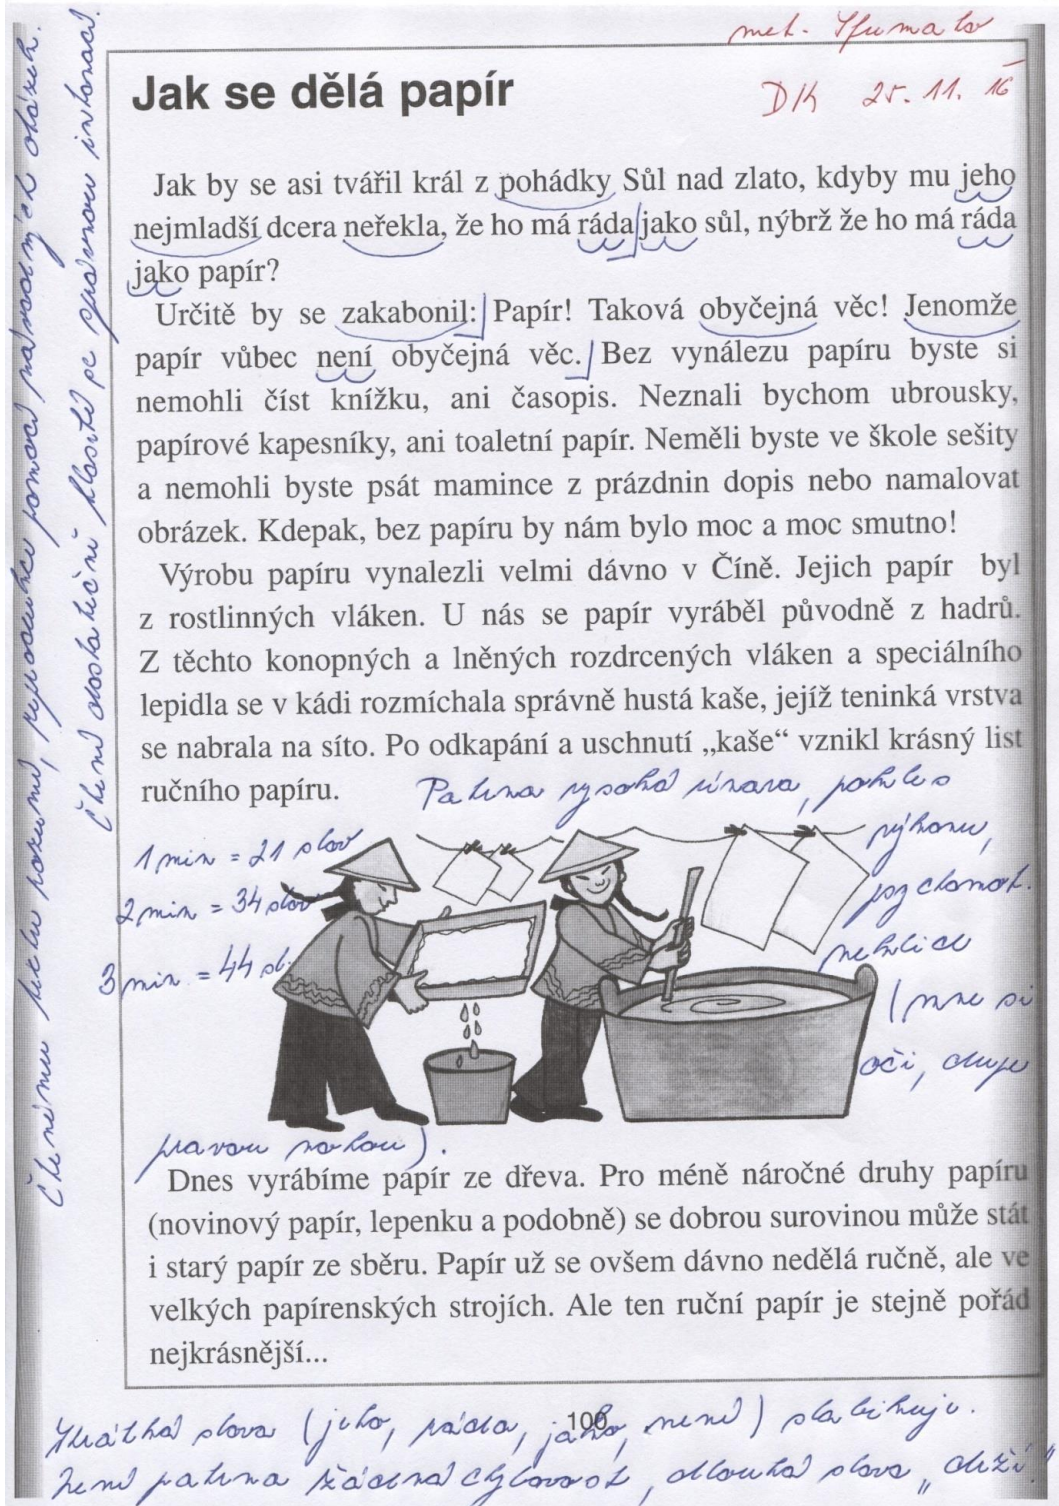 met. Sfumato
DK 25. 11. 16
Jak se dělá papír
Jak by se asi tvářil král z pohádky Sůl nad zlato, kdyby mu jeho
nejmladší dcera neřekla, že ho má ráda jako sůl, nýbrž že ho má ráda
jako papír?
Určitě by se zakabonil: Papír! Taková obyčejná věc! Jenomže
papír vůbec není obyčejná věc. Bez vynálezu papíru byste si
nemohli číst knížku, ani časopis. Neznali bychom ubrousky,
papírové kapesníky, ani toaletní papír. Neměli byste ve škole sešity
a nemohli byste psát mamince z prázdnin dopis nebo namalovat
obrázek. Kdepak, bez papíru by nám bylo moc a moc smutno!
Výrobu papíru vynalezli velmi dávno v Číně. Jejich papír byl
z rostlinných vláken. U nás se papír vyráběl původně z hadrů.
Z těchto konopných a lněných rozdrcených vláken a speciálního
lepidla se v kádi rozmíchala správně hustá kaše, jejíž teninká vrstva
se nabrala na síto. Po odkapání a uschnutí „kaše“ vznikl krásný list
ručního papíru.
Patrna vysoká únava, pokles
výkonu,
psychomot.
neklid
(mne si
oči, duje
pravou nohou).
1 min = 21 slov
2 min = 34 slov
3 min = 44 sl.
Dnes vyrábíme papír ze dřeva. Pro méně náročné druhy papíru
(novinový papír, lepenku a podobně) se dobrou surovinou může stát
i starý papír ze sběru. Papír už se ovšem dávno nedělá ručně, ale ve
velkých papírenských strojích. Ale ten ruční papír je stejně pořád
nejkrásnější...
100
Krátká slova (jeho, ráda, jako, není) slabikuje.
Není patrna žádná chybovost, dlouhá slova „drží“
Čtenému textu rozumí, reprodukce pomocí návodných otázek.
Čtení dostatečně hlasité se správnou intonací.